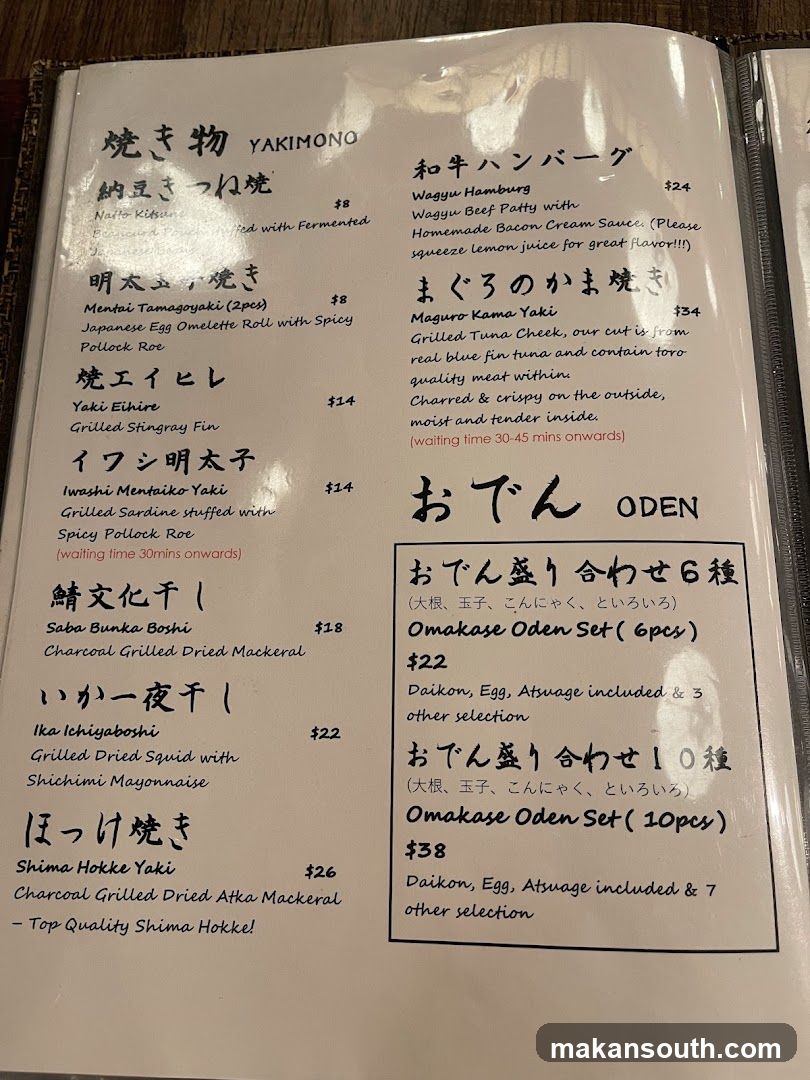 焼き物 YAKIMONO
納豆きつね焼
Natto Kitsune
$8
with Fermented
Japanese
明太玉子焼き
Mentai Tamagoyaki (2pcs) $8
Japanese Egg Omelette Roll with Spicy
Pollock Roe
焼エイヒレ
Yaki Eihire $14
Grilled Stingray Fin
イワシ明太子
Iwashi Mentaiko Yaki $14
Grilled Sardine stuffed with
Spicy Pollock Roe
(waiting time 30mins onwards)
鯖文化干し
Saba Bunka Boshi $18
Charcoal Grilled Dried Mackeral
いか一夜干し
Ika Ichiyaboshi $22
Grilled Dried Squid with
Shichimi Mayonnaise
ほっけ焼き
Shima Hokke Yaki $26
Charcoal Grilled Dried Atka Mackeral
– Top Quality Shima Hokke!
和牛ハンバーグ
Wagyu Hamburg $24
Wagyu Beef Patty with
Homemade Bacon Cream Sauce. (Please
squeeze lemon juice for great flavor!!!)
まぐろのかま焼き
Maguro Kama Yaki $34
Grilled Tuna Cheek, our cut is from
real blue fin tuna and contain toro
quality meat within.
Charred & crispy on the outside,
moist and tender inside.
(waiting time 30-45 mins onwards)
おでん ODEN
おでん盛り合わせ６種
(大根、玉子、こんにゃく、といろいろ)
Omakase Oden Set ( 6pcs )
$22
Daikon, Egg, Atsuage included & 3
other selection
おでん盛り合わせ１０種
(大根、玉子、こんにゃく、といろいろ)
Omakase Oden Set ( 10pcs )
$38
Daikon, Egg, Atsuage included & 7
other selection
makansouth.com